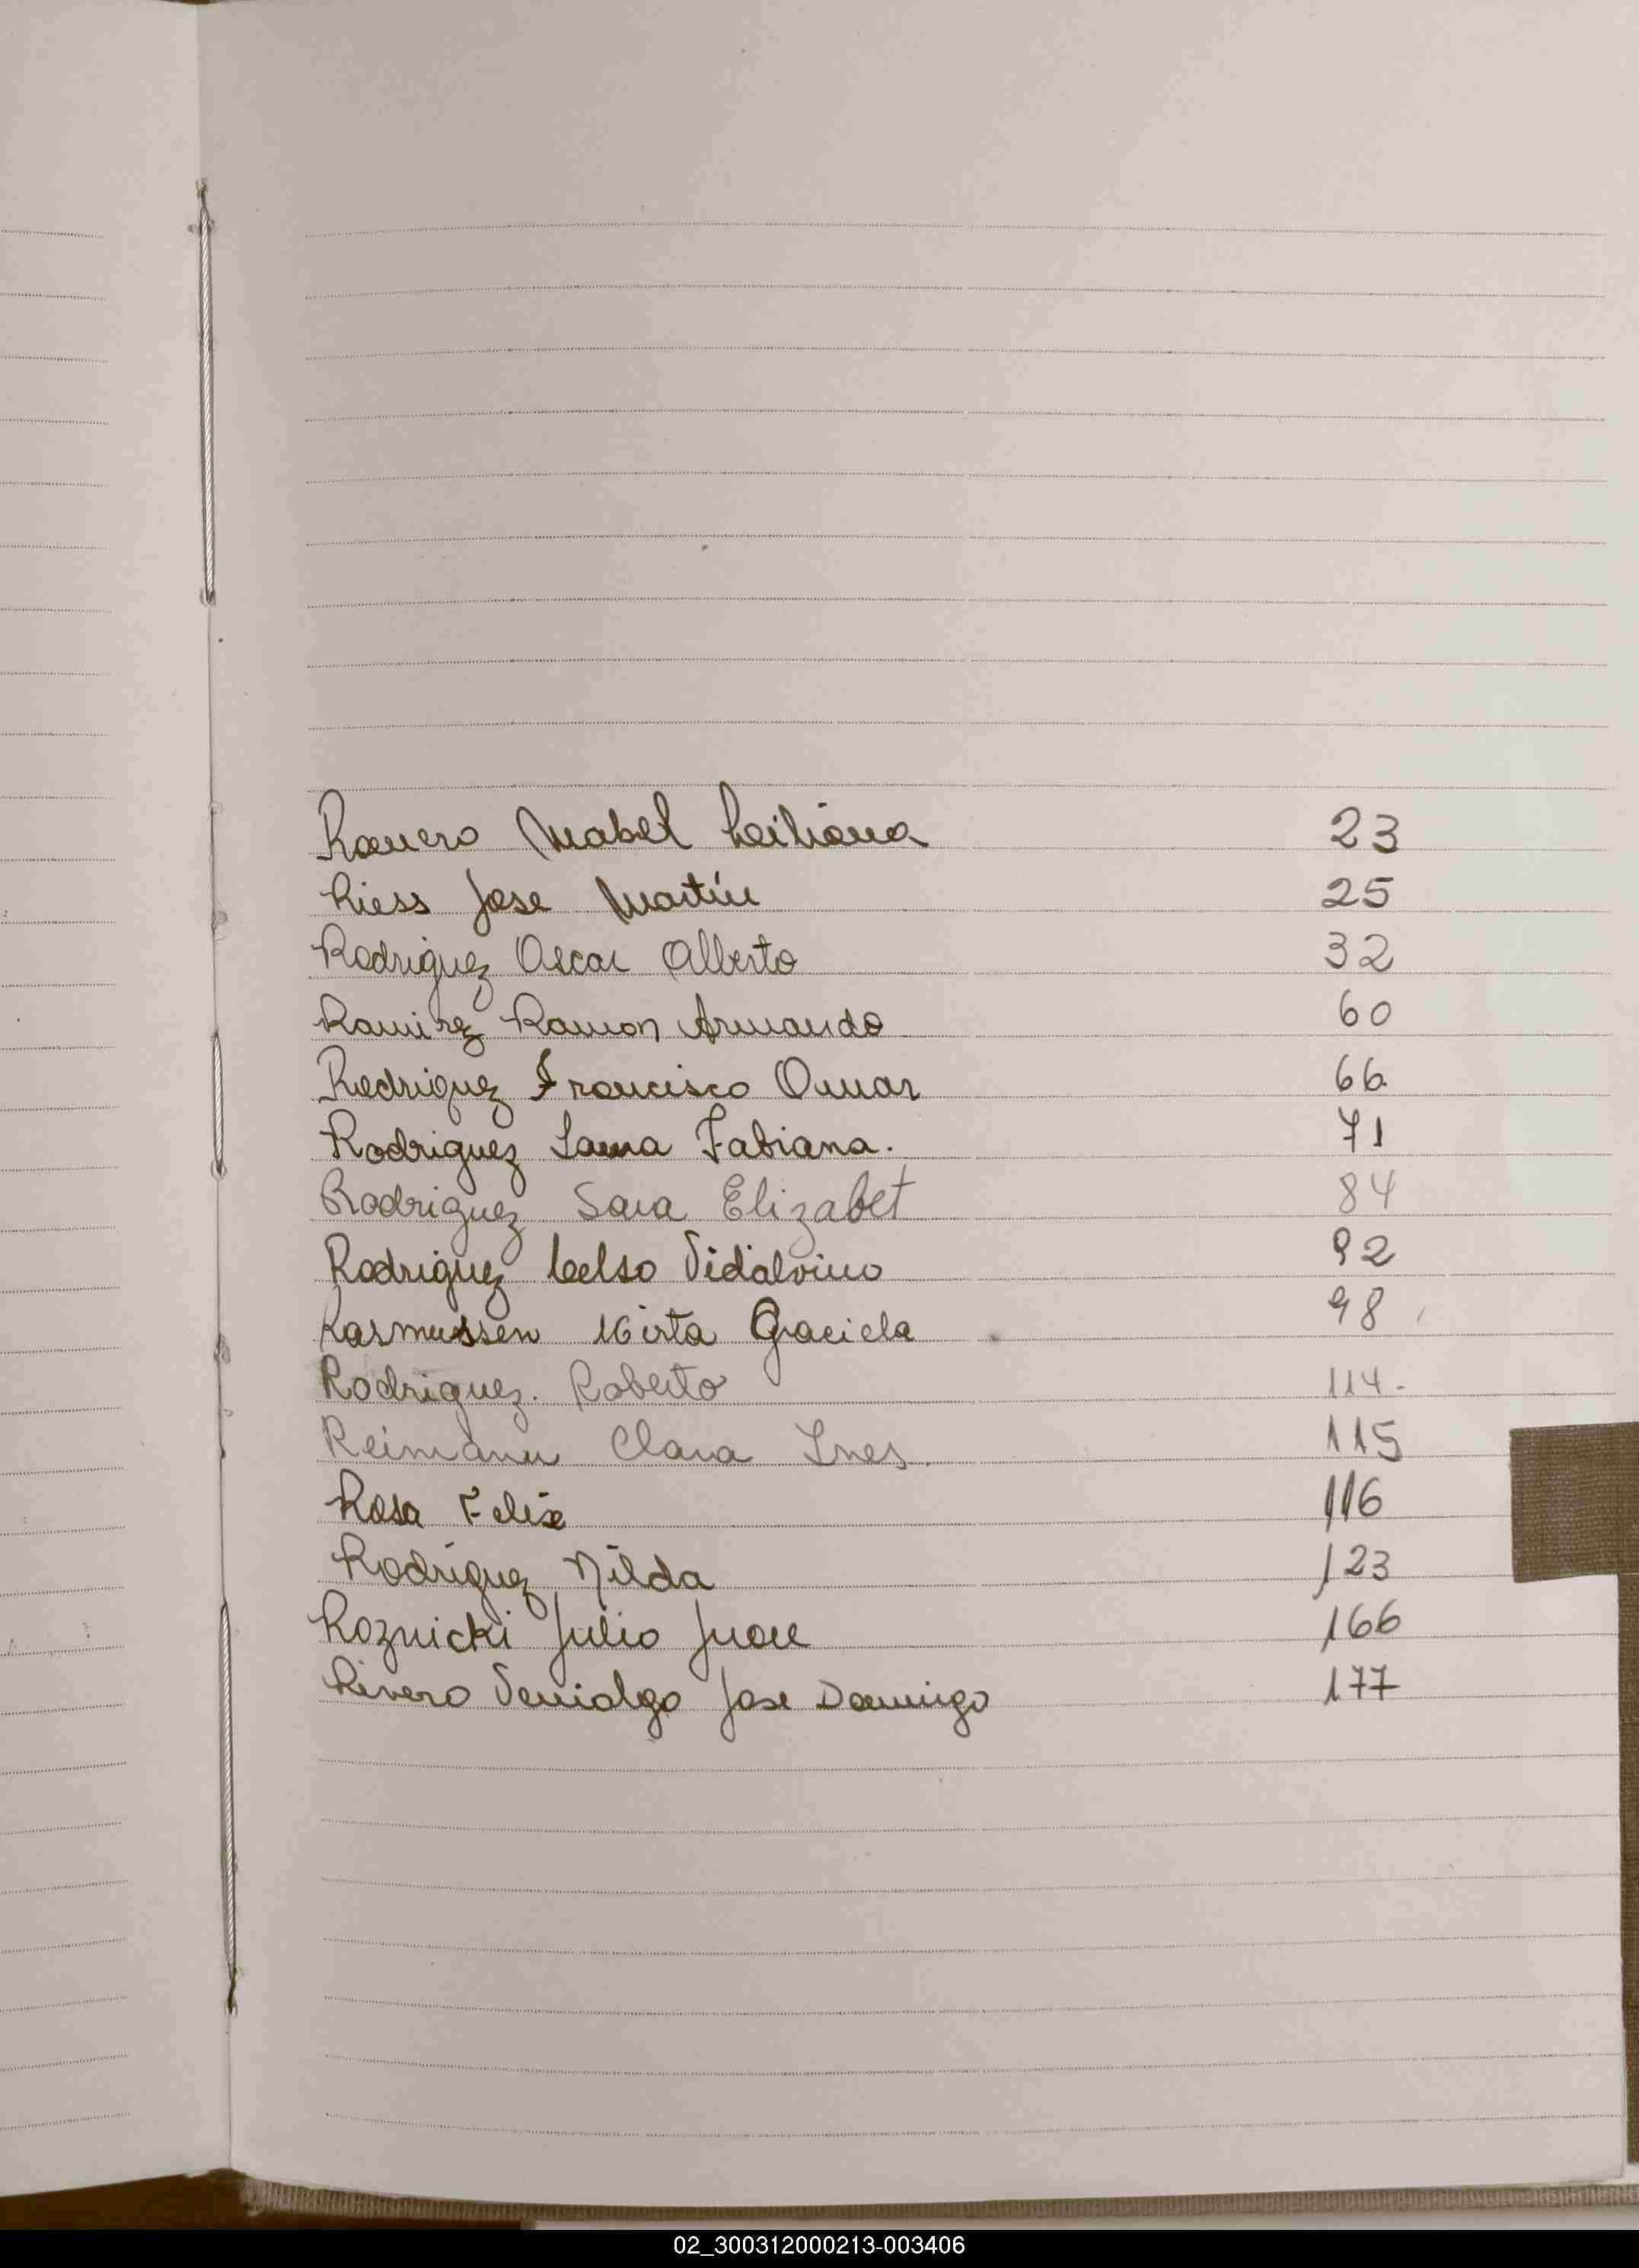 Romero Mabel Leiliana 23
Riess Jose Martín 25
Rodriguez Oscar Alberto 32
Ramirez Ramon Armando 60
Rodriguez Francisco Omar 66
Rodriguez Laura Fabiana. 71
Rodriguez Sara Elizabet 84
Rodriguez Celso Vidalvino 92
Rasmussen Mirta Graciela 98
Rodriguez. Roberto 114.
Reimann Clara Ines. 115
Rosa Felix 116
Rodriguez Nilda 123
Roznicki Julio Juan 166
Rivero Venialgo Jose Domingo 177
02_300312000213-003406